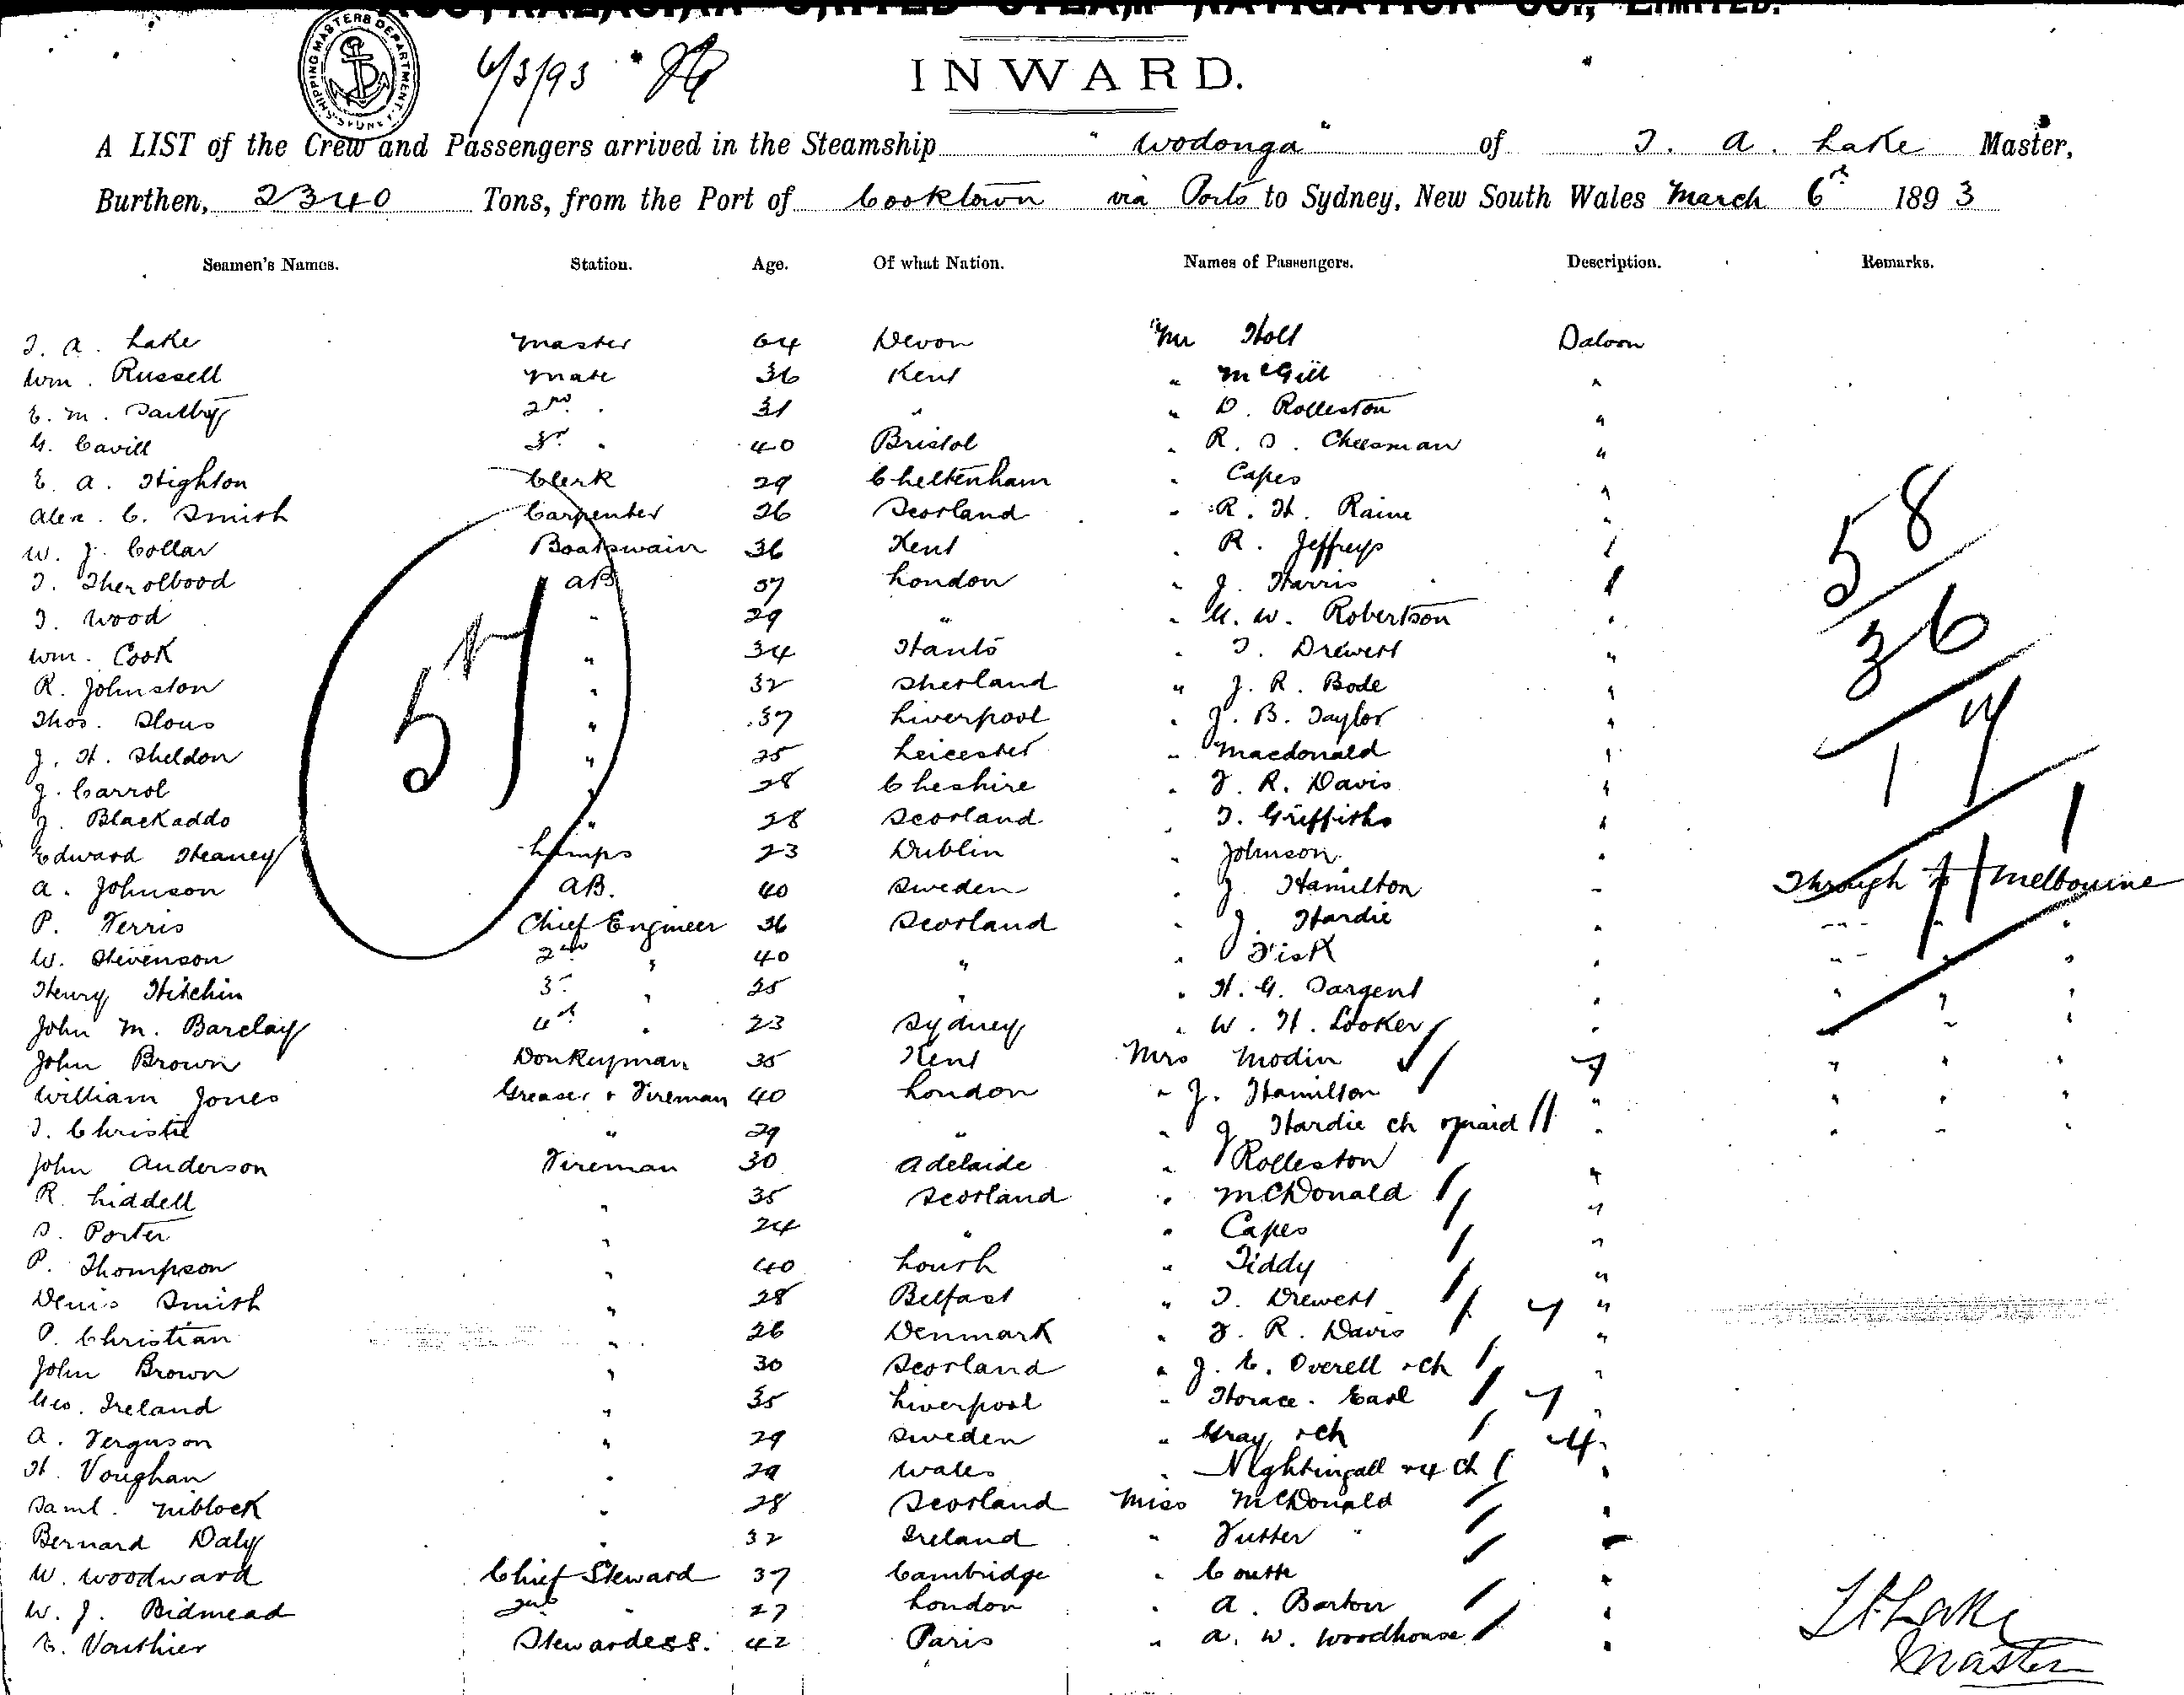 AUSTRALASIAN UNITED STEAM NAVIGATION CO., LIMITED.
SHIPPING MASTERS DEPARTMENT. SYDNEY
6/3/93
INWARD.
A LIST of the Crew and Passengers arrived in the Steamship "Wodonga" of T. A. Lake Master,
Burthen, 2340 Tons, from the Port of Cooktown via Ports to Sydney, New South Wales March 6th 1893
Seamen's Names. Station. Age. Of what Nation. Names of Passengers. Description. Remarks.
T. A. Lake Master 64 Devon Mr Holt Saloon
Wm. Russell Mate 36 Kent " McGill "
E. M. 2nd " 31 " " D. Rolleston "
G. Cavill 3rd " 40 Bristol " R. S. Cheesman "
E. A. Highton Clerk 29 Cheltenham " Capes "
Alex. C. Smith Carpenter 26 Scotland " R. H. Raine "
W. J. Collar Boatswain 36 Kent " R. Jeffreys "
T. AB 37 London " J. Harris "
T. Wood " 29 " " G. W. Robertson "
Wm. Cook " 34 Hants " T. Drewett "
R. Johnston " 32 Shetland " J. R. Bode "
Thos. Slous " 37 Liverpool " J. B. Taylor "
J. H. Sheldon " 25 Leicester " Macdonald "
J. Carrol " 28 Cheshire " F. R. Davis "
J. Blackaddo " 28 Scotland " T. Griffiths "
Edward Heaney Lamps 23 Dublin " Johnson "
A. Johnson AB. 40 Sweden " J. Hamilton " Through to Melbourne
P. Ferris Chief Engineer 36 Scotland " J. Hardie " " " "
W. Stevenson 2nd " 40 " " Fisk " " " "
Henry Hitchin 3rd " 25 " " H. G. Sargent " " " "
John M. Barclay 4th " 23 Sydney " W. H. Looker " " " "
John Brown Donkeyman 35 Kent Mrs Modin " " " "
William Jones Greaser & Fireman 40 London " J. Hamilton " " " "
T. Christie " 29 " " J Hardie ch & maid " " " "
John Anderson Fireman 30 Adelaide " Rolleston "
R. Liddell " 35 Scotland " McDonald "
S. Porter " 24 " " Capes "
P. Thompson " 40 Louth " Tiddy "
Denis Smith " 28 Belfast " T. Drewett "
P. Christian " 26 Denmark " F. R. Davis "
John Brown " 30 Scotland " J. E. Overell & ch "
Geo. Ireland " 35 Liverpool " Horace. Earl "
A. Ferguson " 29 Sweden " Gray & ch "
H. Voughan " 29 Wales " Nightingall & 4 ch "
Saml. Niblock " 28 Scotland Miss McDonald "
Bernard Daly " 32 Ireland " Futter "
W. Woodward Chief Steward 37 Cambridge " Coutts "
W. J. Bidmead 2nd " 27 London " A. Barton "
E. Vauthier Stewardess. 42 Paris " A. W. Woodhouse "
57
58
36
14
1
T A Lake
Master